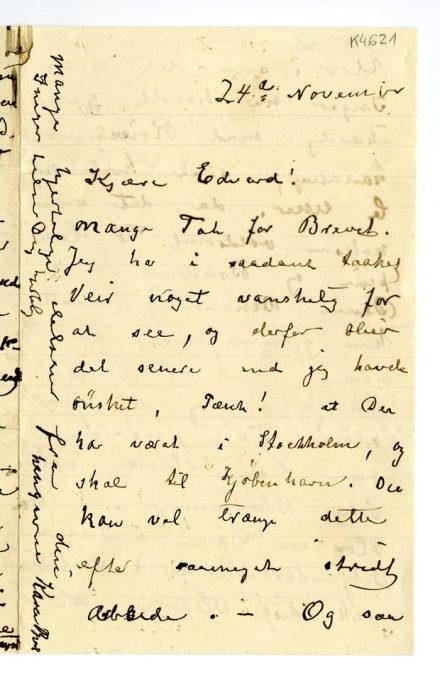 K4621
24de November
Kjære Edvard!
Mange Tak for Brevet.
Jeg har i saadant taaket
Veir noget vanskelig for
at see, og derfor blev
det senere end jeg havde
ønsket, Tænk! at Du
har været i Stockholm, og
skal til Kjøbenhavn. Du
kan vel trænge dette
efter saameget stridt
Arbeide. — Og saa
Mange hjertelige Hilsener fra din
hengivne
Inger hilser Dig